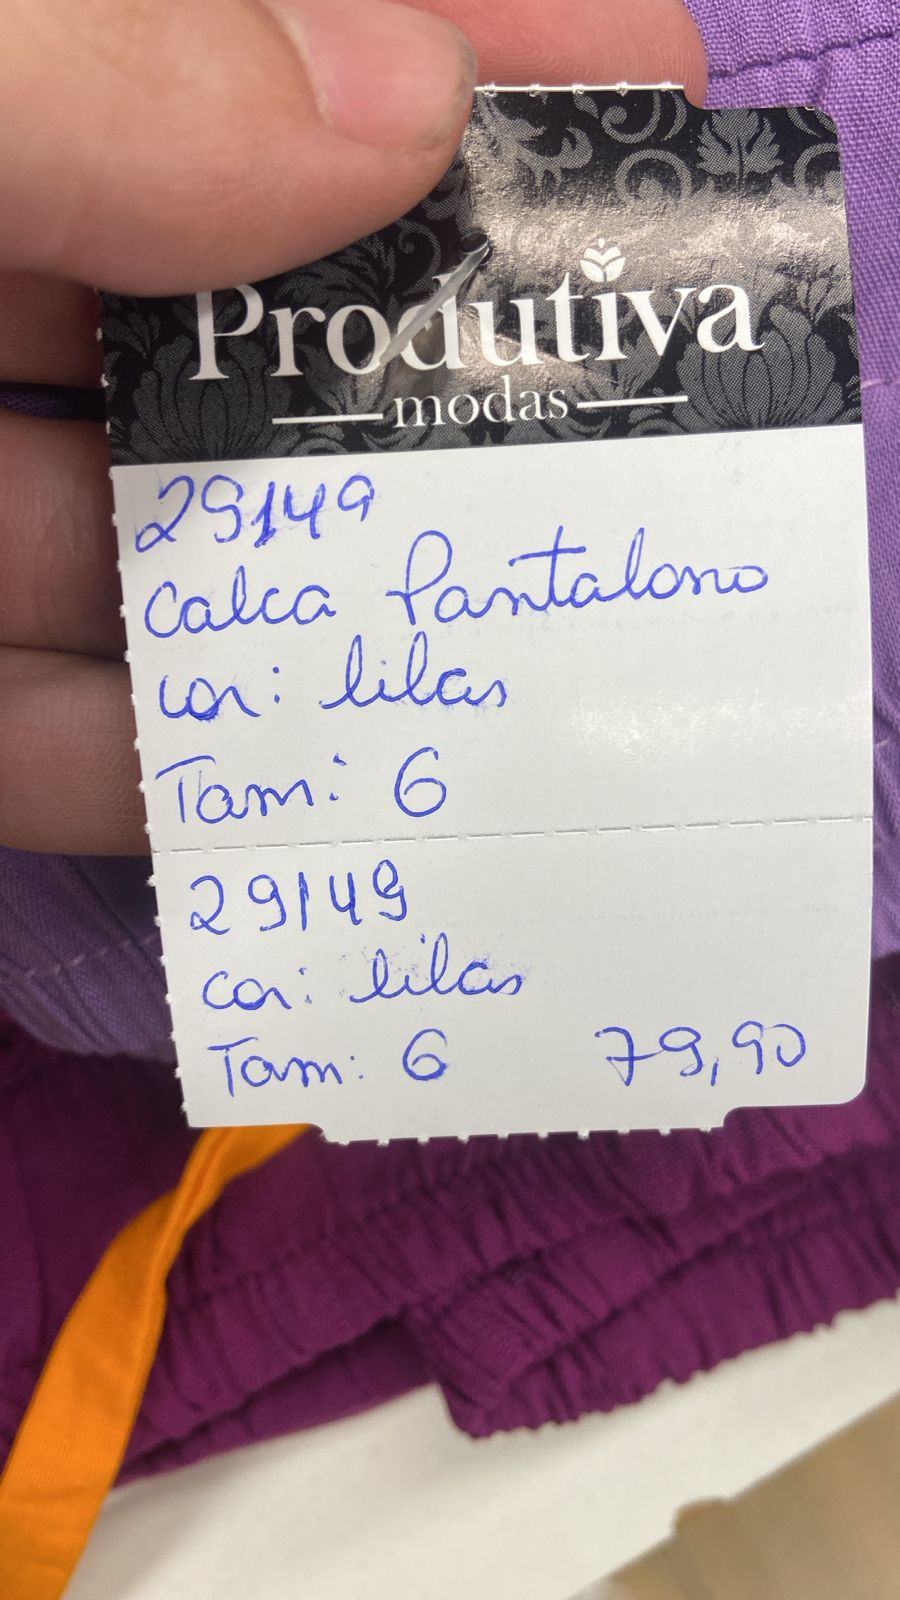 Produtiva
modas
29149
Calca Pantalona
cor: lilas
Tam: 6
29149
cor: lilas
Tam: 6 79,90